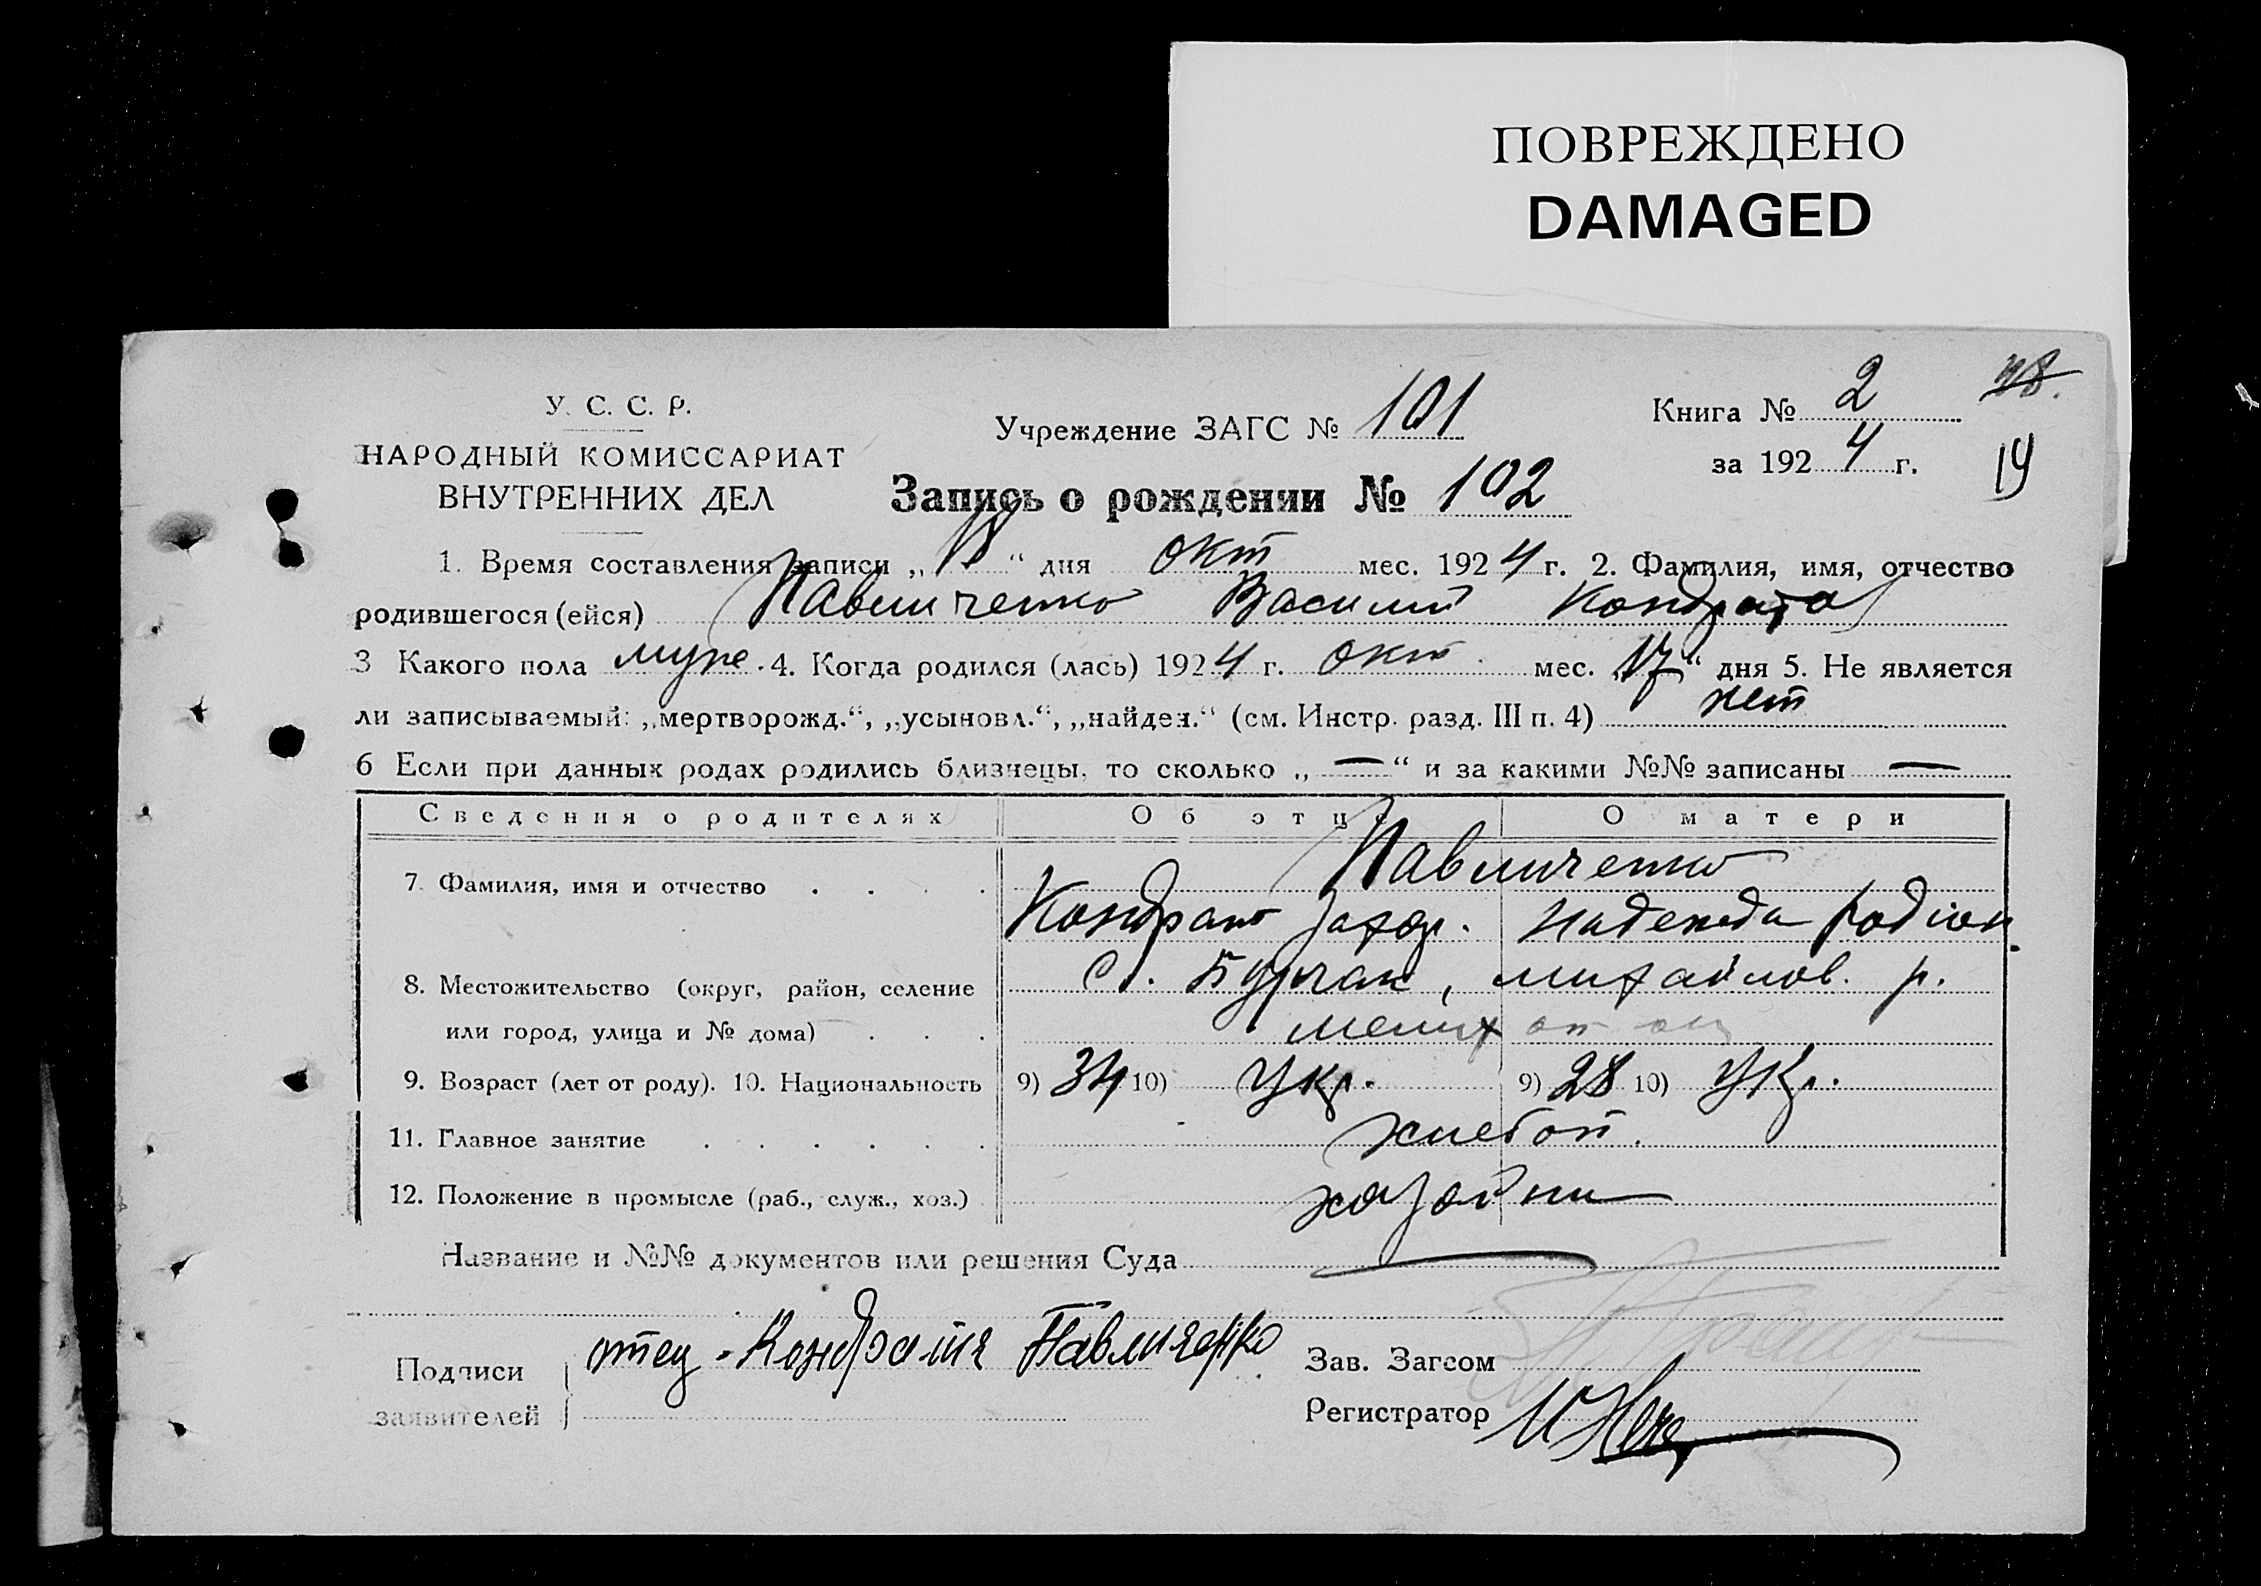 ПОВРЕЖДЕНО
DAMAGED
У. С. С. Р.
НАРОДНЫЙ КОМИССАРИАТ
ВНУТРЕННИХ ДЕЛ
Учреждение ЗАГС № 101
Запись о рождении № 102
Книга № 2
за 1924 г.
1. Время составления записи „18“ дня окт мес. 1924 г. 2. Фамилия, имя, отчество
родившегося (ейся) Павличенко Василий Кондрат
3 Какого пола муж. 4. Когда родился (лась) 1924 г. окт. мес. „17“ дня 5. Не является
ли записываемый: „мертворожд.“, „усыновл.“, „найден.“ (см. Инстр. разд. III п. 4) нет
6 Если при данных родах родились близнецы, то сколько „—“ и за какими №№ записаны —
Сведения о родителях Об отце О матери
7. Фамилия, имя и отчество . . . . Павличенко
Кондрат Захар. Надежда Родіон.
8. Местожительство (округ, район, селение с. Бурчак, Михайлов. р.
или город, улица и № дома) . . . Мелит
9. Возраст (лет от роду). 10. Национальность 9) 34 10) Укр. 9) 28 10) Укр.
11. Главное занятие . . . . . . хлебоп.
12. Положение в промысле (раб., служ., хоз.) хозяйин
Название и №№ документов или решения Суда —
Подписи
заявителей
отец - Кондратія Павличенко
Зав. Загсом
Регистратор